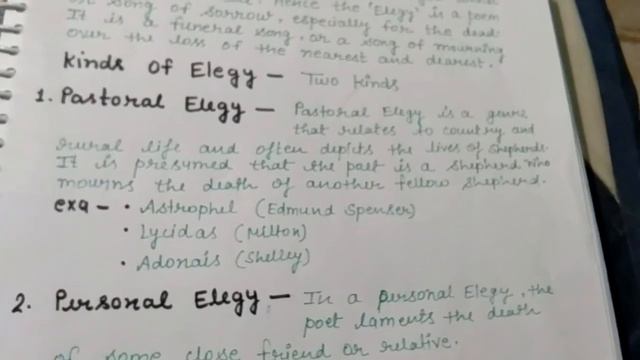 Hence the 'Elegy' is a poem
or song of sorrow, especially for the dead.
It is a funeral song, or a song of mourning
over the loss of the nearest and dearest.
Kinds Of Elegy - Two Kinds
1. Pastoral Elegy - Pastoral Elegy is a genre
that relates to country and
rural life and often depicts the lives of Shepherds.
It is presumed that the poet is a Shepherd who
mourns the death of another fellow Shepherd.
exa - • Astrophel (Edmund Spenser)
• Lycidas (Milton)
• Adonais (Shelley)
2. Personal Elegy - In a personal Elegy, the
poet laments the death
of some close friend or relative.